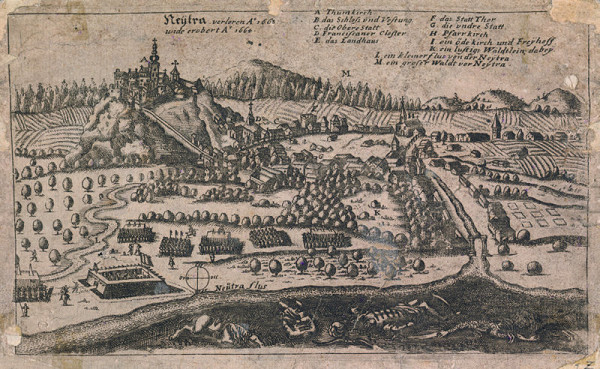 Neÿtra verloren Aº 166
wide erobert Aº 166
A Thumkirch
B das Schloß vnd Vestung
C. die obere statt
D Franciscaner Closter
E. das Landhaus
F das Statt Thor
G. die vndre Statt.
H Pfarrkirch
I ein öde kirch und Freyhoff
K ein lustigs Waldtlein dabey
L ein kleiner flus von der Neytra
M ein grosser Waldt vor Neytra
M
Neÿtra flus